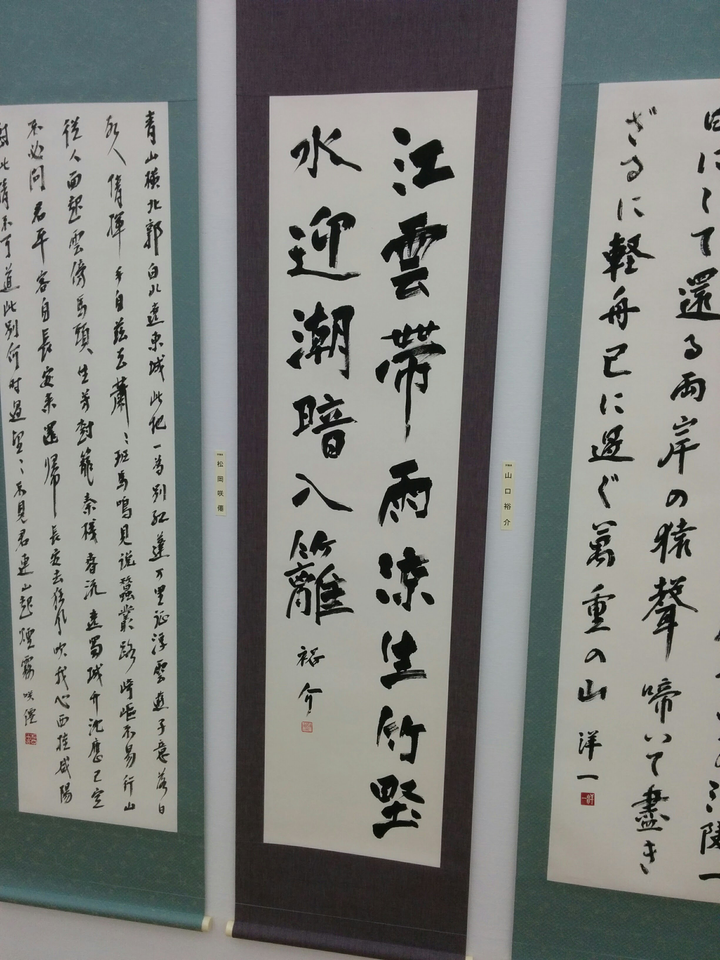 の江陵一
日にして還る両岸の猿聲啼いて盡き
ざるに軽舟已に過ぐ萬重の山 洋一
山口裕介
江雲帯雨涼生竹埜
水迎潮暗入籬 裕介
松田咲優
青山横北郭白水遶東城此地一為別孤蓬万里征浮雲遊子意落日
故人情揮手自茲去蕭〻班馬鳴見説蠶叢路崎嶇不易行山
従人面起雲傍馬頭生芳樹籠秦桟春流遶蜀城升沈應已定
不必問君平客自長安来還帰長安去狂風吹我心西挂咸陽
樹此情不可道此別何時遇望〻不見君連山起煙霧 咲優